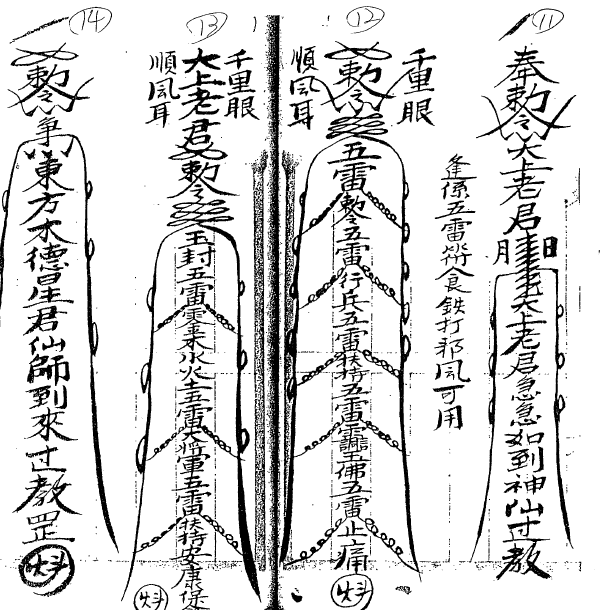 11
奉敕令
太上老君
月
日
太上老君急急如到神仙过教
逢係五雷符食鉄打邪風可用
12
敕令
千里眼
順風耳
五雷
敕令五雷行兵五雷扶持五雷
佛五雷止痛
13
千里眼
順風耳
太上老君敕令
玉封五雷
木水火土五雷大將軍五雷扶持安康
14
敕令
東方木德星君仙師到來过教罡